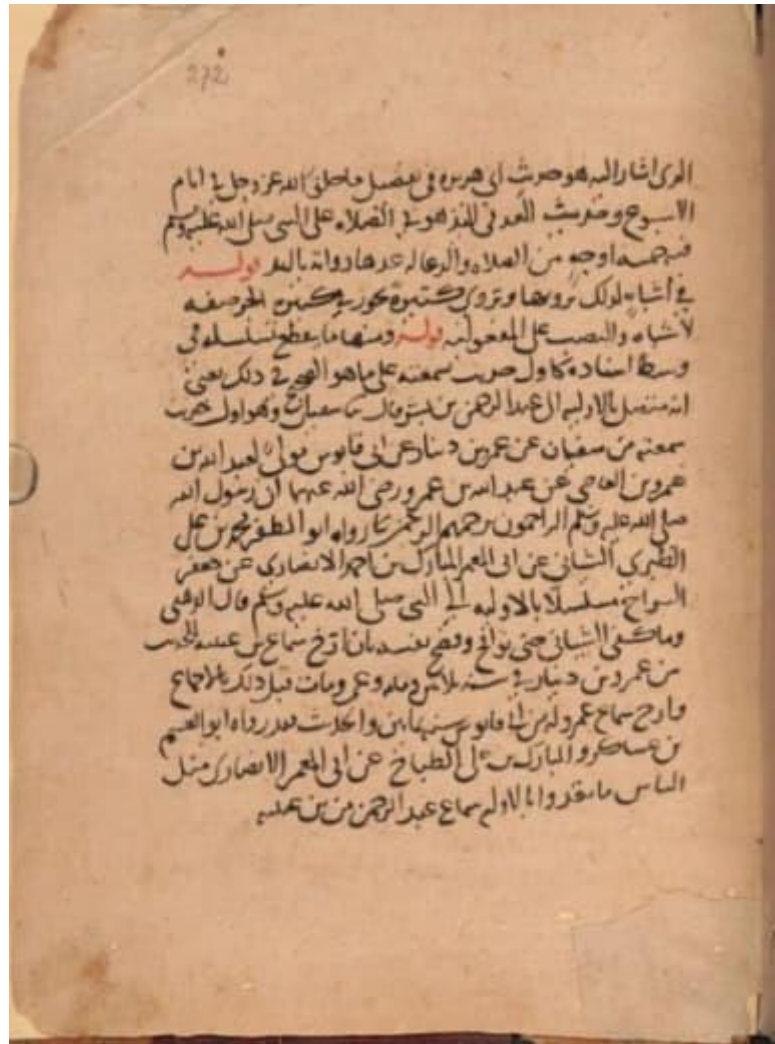 272
الذى اشار اليه هو حديث ابى هريره فى تفصيل ما خلق الله عز وجل فى ايام
الاسبوع وحديث العد فى اليد هو فى الصلاه على النبى صلى الله عليه وسلم
فيه خمسه اوجه من الصلاه والدعاله عدها رواته باليد قوله
فى أشباهٍ لذلك نرويها وتروى كثيرة يجوز فى كثيره الجر صفه
لأشباه والنصب على المفعوليه قوله ومنها ما ينقطع تسلسله فى
وسط اسناده كاول حديث سمعته على ما هو الصحيح فى ذلك يعنى
انه متصل بالاوليه الى عبد الرحمن بن بشر قال سا سفيان وهو اول حديث
سمعته من سفيان عن عمرو بن دينار عن ابى قابوس مولى لعبد الله بن
عمرو بن العاصى عن عبد الله بن عمرو رضى الله عنهما ان رسول الله
صلى الله عليه وسلم قال الراحمون يرحمهم الرحمن رواه ابو المظفر محمد بن على
الطبرى الشيبانى عن ابى المعمر المبارك بن احمد الانصارى عن جعفر
السراج مسلسلا بالاوليه الى النبى صلى الله عليه وسلم قال الذهبى
وما كفى الشيبانى حتى وفضح نفسه بان ارخ سماع بن عيينه للحديث
من عمرو بن دينار فى سنه ثلاثين ومايه وعمرو مات قبل ذلك بالاجماع
وارخ سماع عمرو له من ابى قابوس سنه ثمانين والحديث فقد رواه ابو القسم
بن عساكر والمبارك بن على الطباخ عن ابى المعمر الانصارى مثل
الناس ما تعدوا بالاوليه سماع عبد الرحمن من بن عيينه